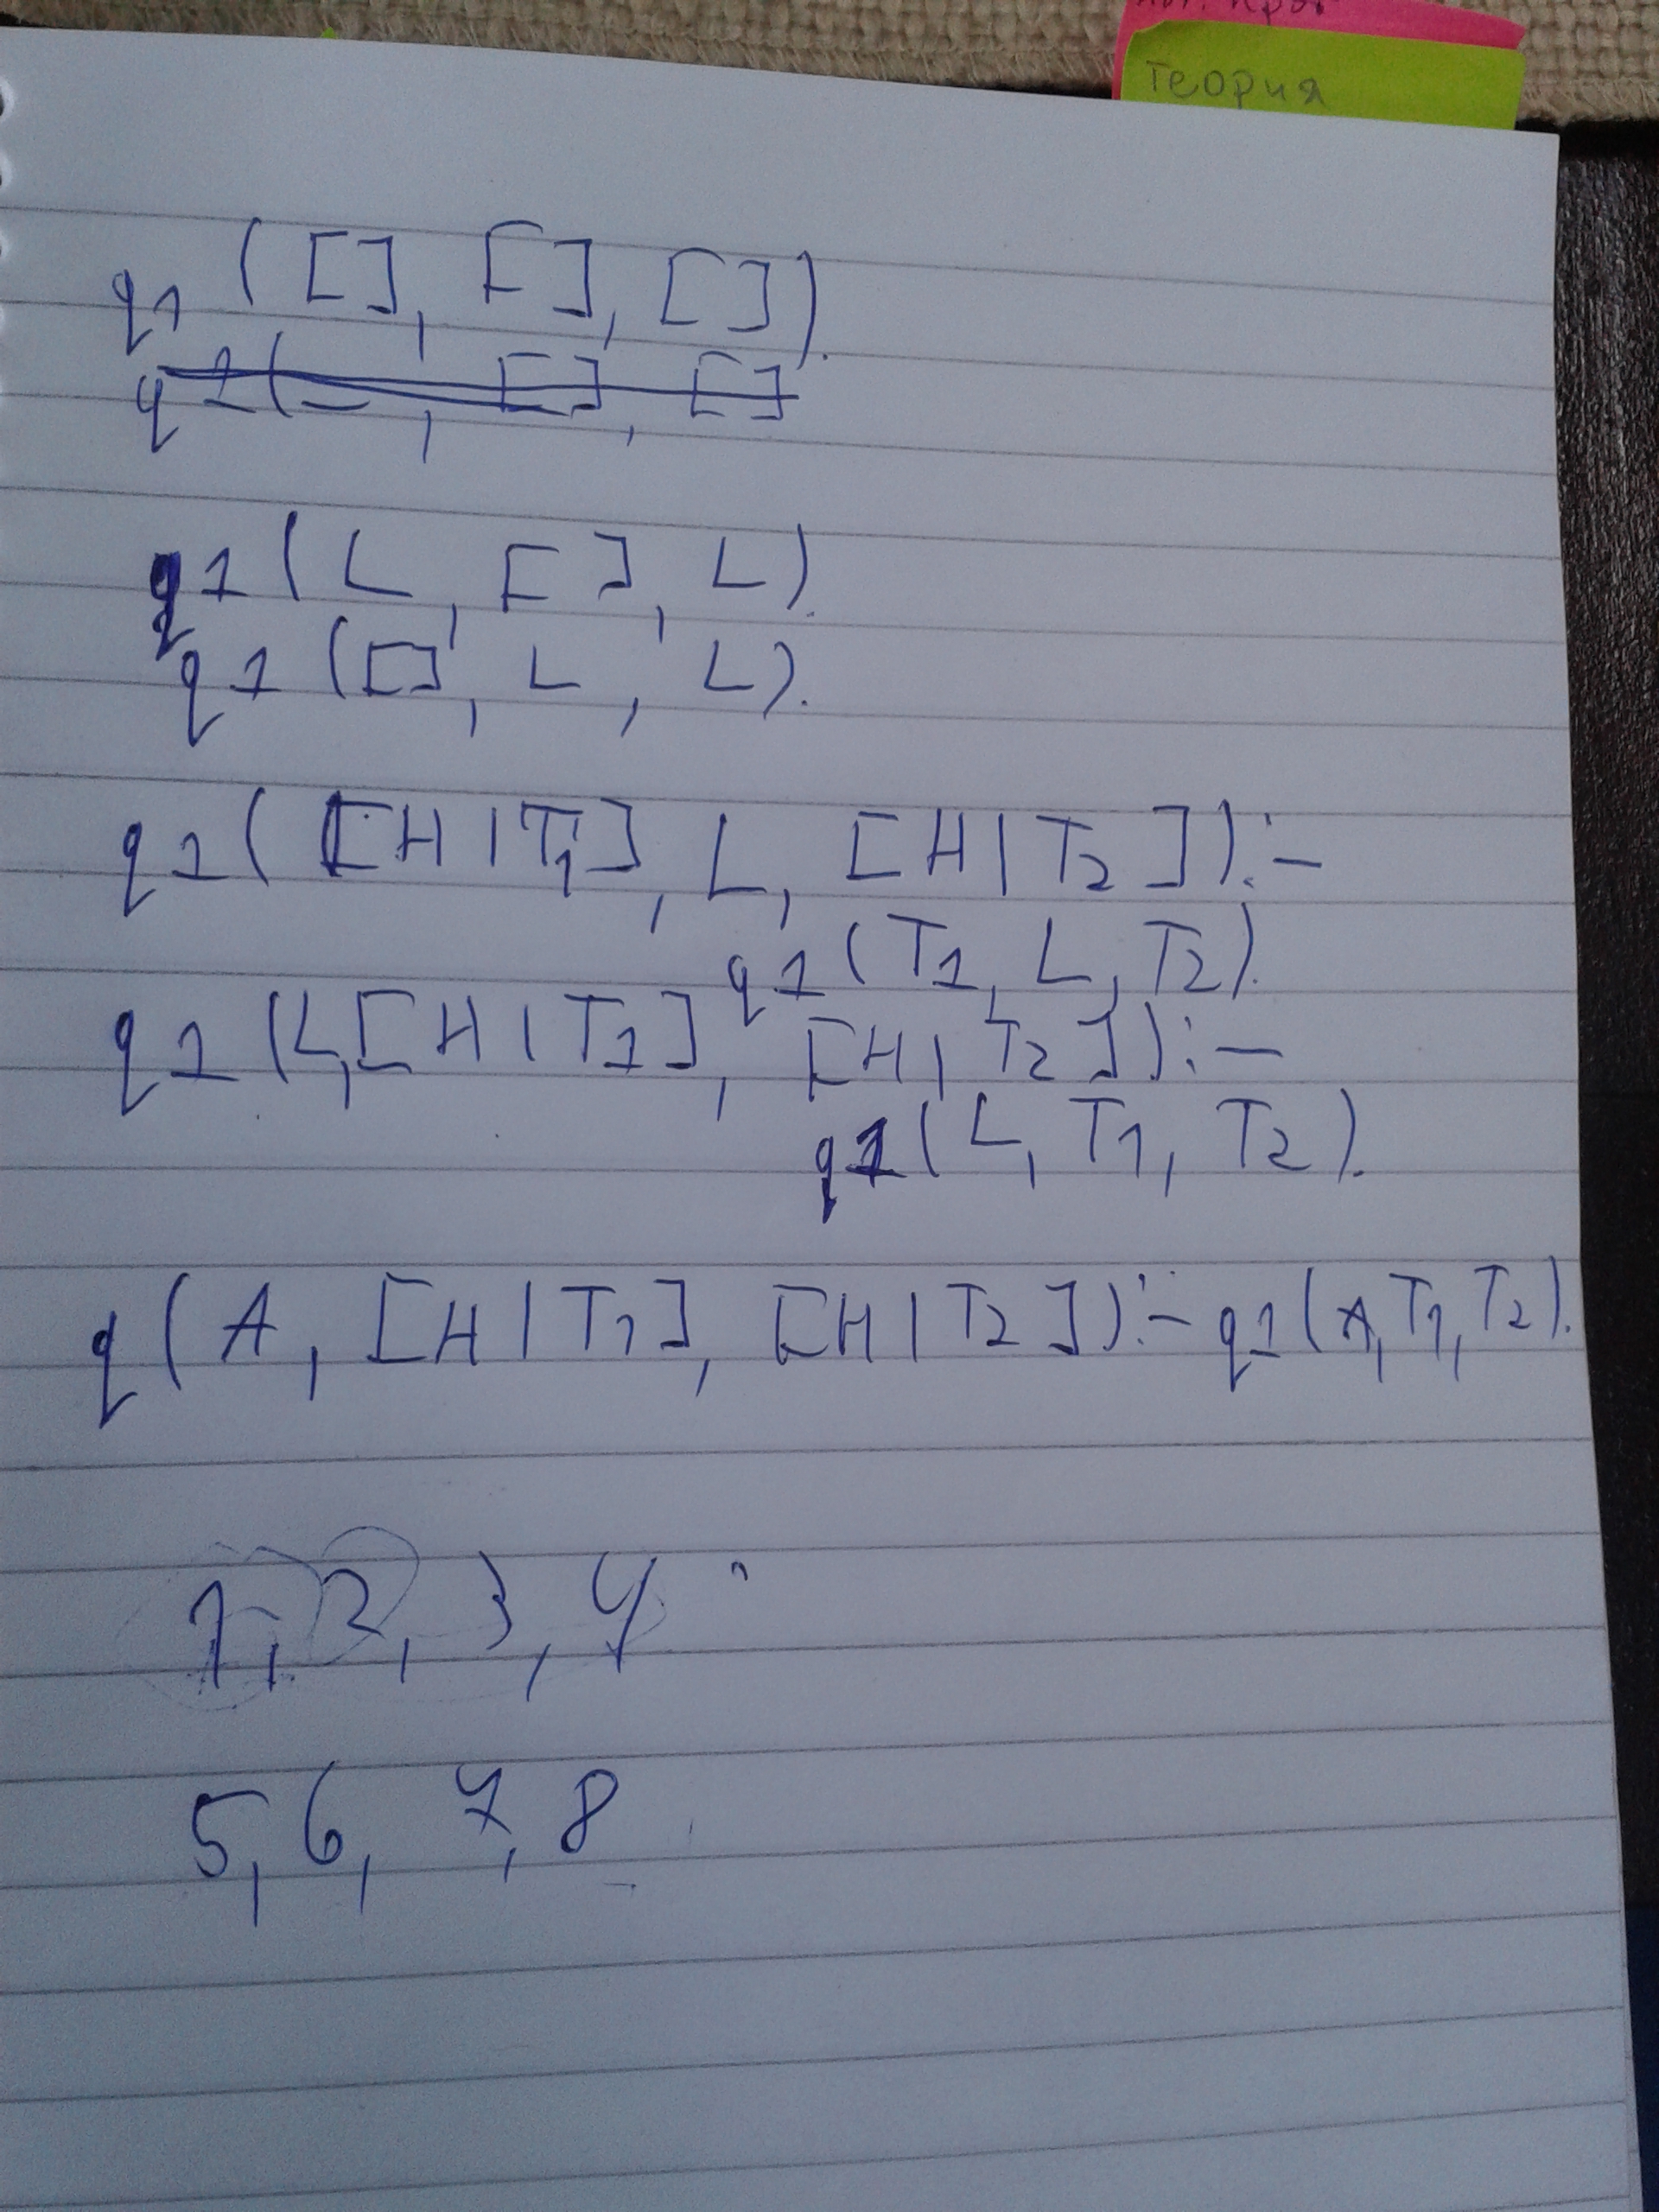 Теория
q1([], [], []).
q1(_, [], []
q1(L, [], L).
q1([], L, L).
q1([H|T1], L, [H|T2]):-
q1(T1, L, T2).
q1(L,[H|T1], [H|T2]):-
q1(L, T1, T2).
q(A, [H|T1], [H|T2]):- q1(A,T1,T2).
1, 2, 3, 4
5, 6, 7, 8